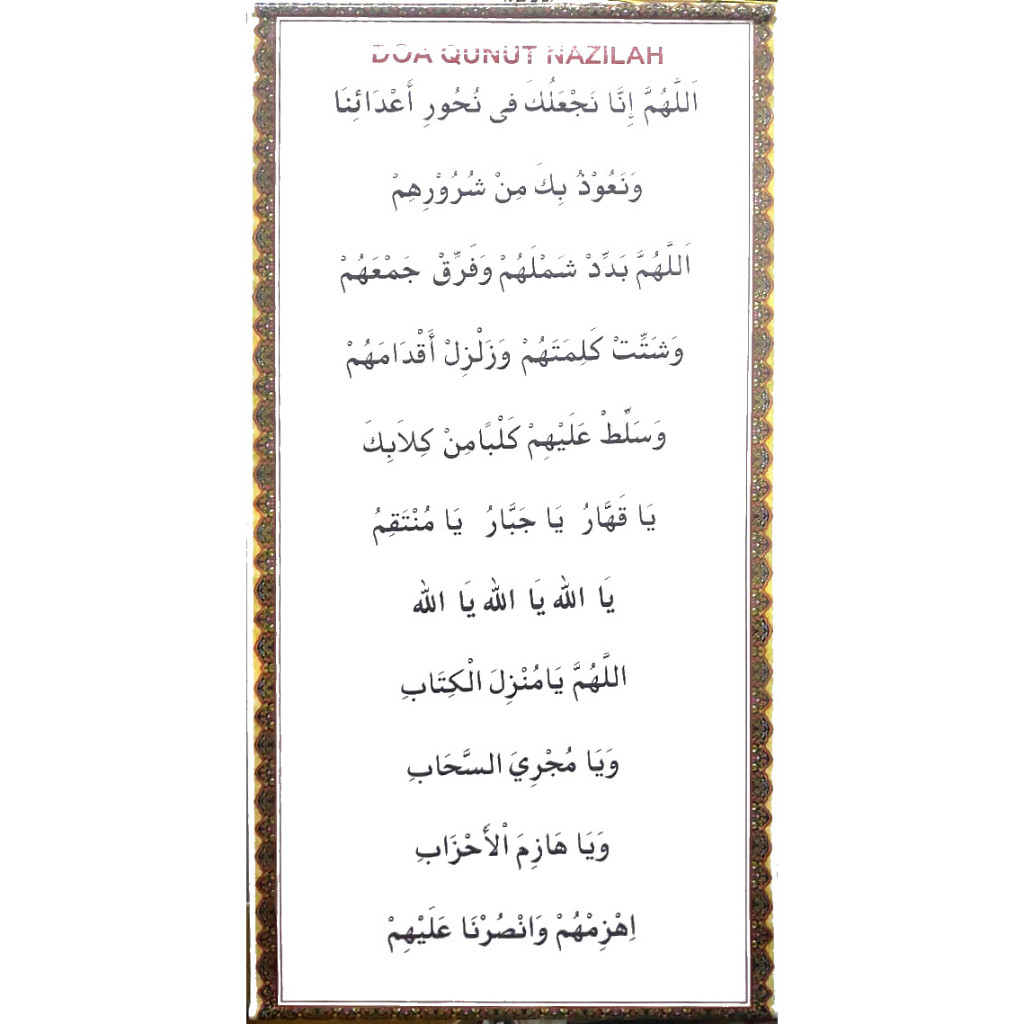 DOA QUNUT NAZILAH
اَللَّهُمَّ إِنَّا نَجْعَلُكَ فِى نُحُورِ أَعْدَائِنَا
وَنَعُوْذُ بِكَ مِنْ شُرُوْرِهِمْ
اَللَّهُمَّ بَدِّدْ شَمْلَهُمْ وَفَرِّقْ جَمْعَهُمْ
وَشَتِّتْ كَلِمَتَهُمْ وَزَلْزِلْ أَقْدَامَهُمْ
وَسَلِّطْ عَلَيْهِمْ كَلْبًامِنْ كِلاَبِكَ
يَا قَهَّارُ يَا جَبَّارُ يَا مُنْتَقِمُ
يَا الله يَا الله يَا الله
اللَّهُمَّ يَامُنْزِلَ الْكِتَابِ
وَيَا مُجْرِيَ السَّحَابِ
وَيَا هَازِمَ اْلأَحْزَابِ
اِهْزِمْهُمْ وَانْصُرْنَا عَلَيْهِمْ